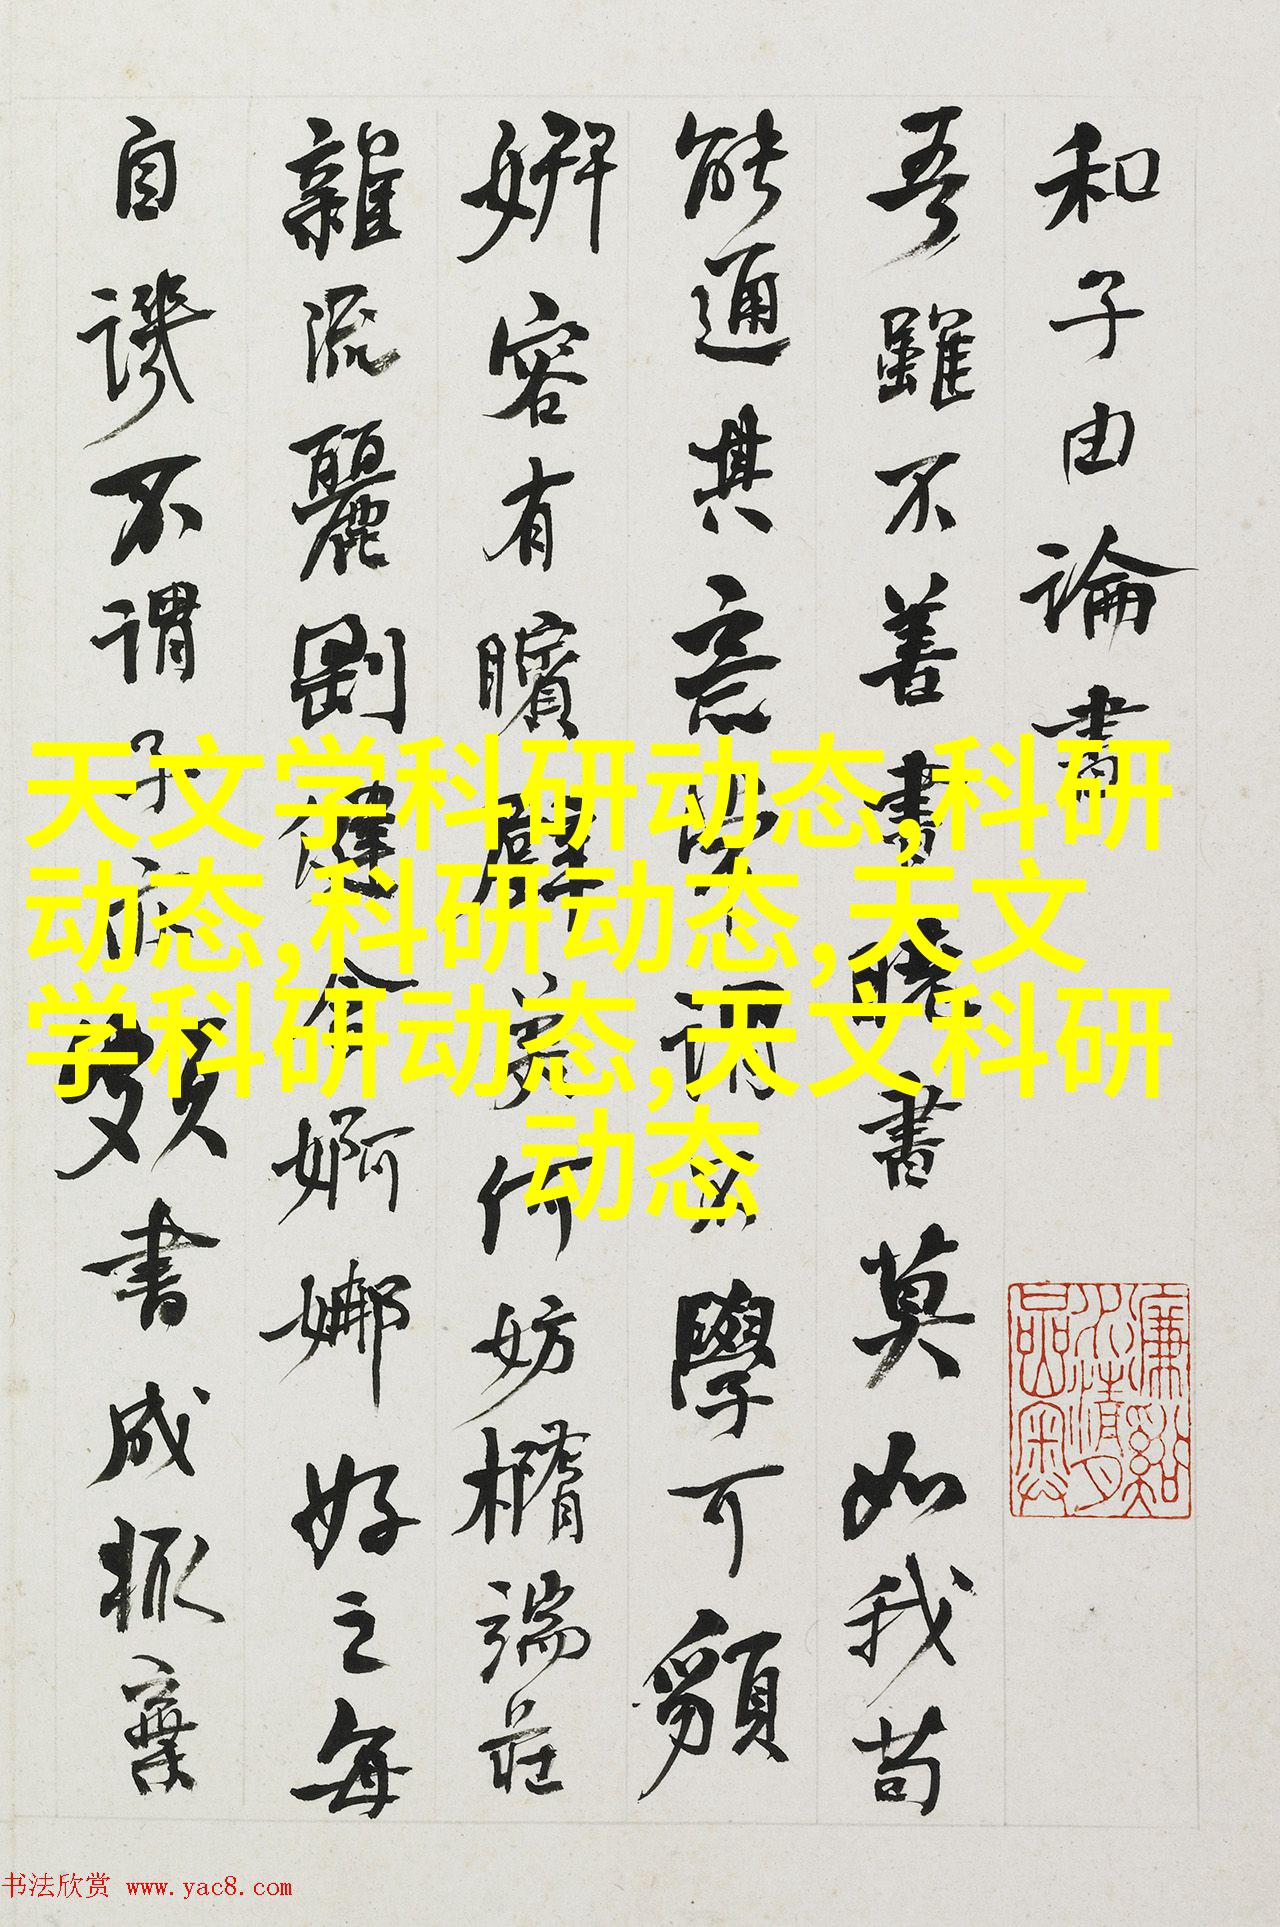 和子由論書
吾雖不善書曉書莫如我苟
能通其意常謂不學可䫉
妍容有矉璧美何妨橢端莊
雜流麗剛健含婀娜好之每
自譏不謂子頗書成輒棄
天文学科研动态,科研
动态,科研动态,天文
学科研动态,天文科研
动态
书法欣赏 www.yac8.com